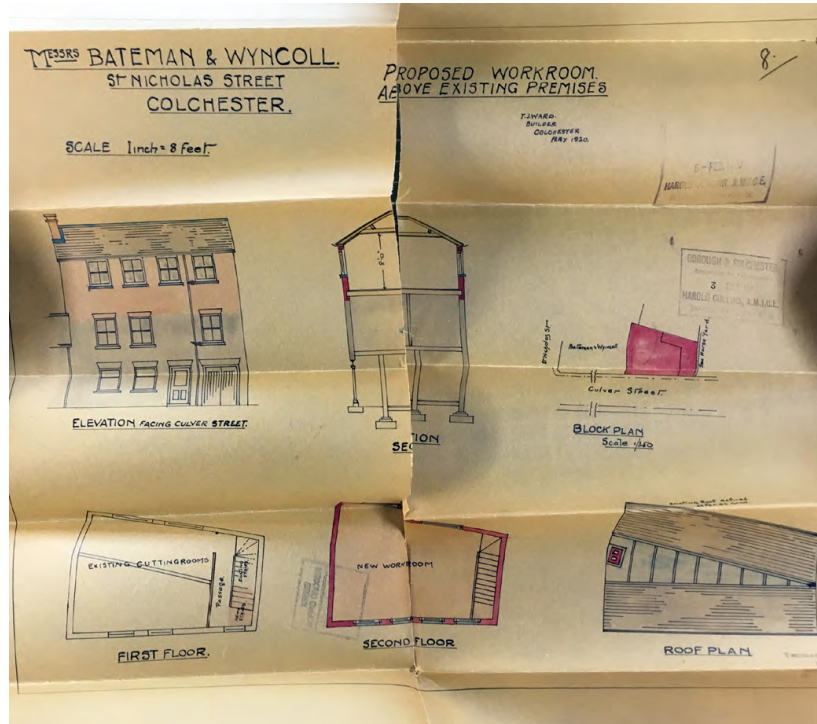 MESSRS BATEMAN & WYNCOLL.
ST NICHOLAS STREET
COLCHESTER.
SCALE 1 inch = 8 Feet.
PROPOSED WORKROOM.
ABOVE EXISTING PREMISES
8.
T.J. WARD.
BUILDER
COLCHESTER
MAY 1920.
HAROLD A.M.I.C.E.
BOROUGH OF COLCHESTER
3
HAROLD COLLINS, A.M.I.C.E.
8'-0"
ELEVATION FACING CULVER STREET.
SECTION
Bateman & Wyncoll
Culver Street.
BLOCK PLAN
Scale 1/250
EXISTING CUTTINGROOMS
Passage
NEW WORKROOM
FIRST FLOOR.
SECOND FLOOR
ROOF PLAN